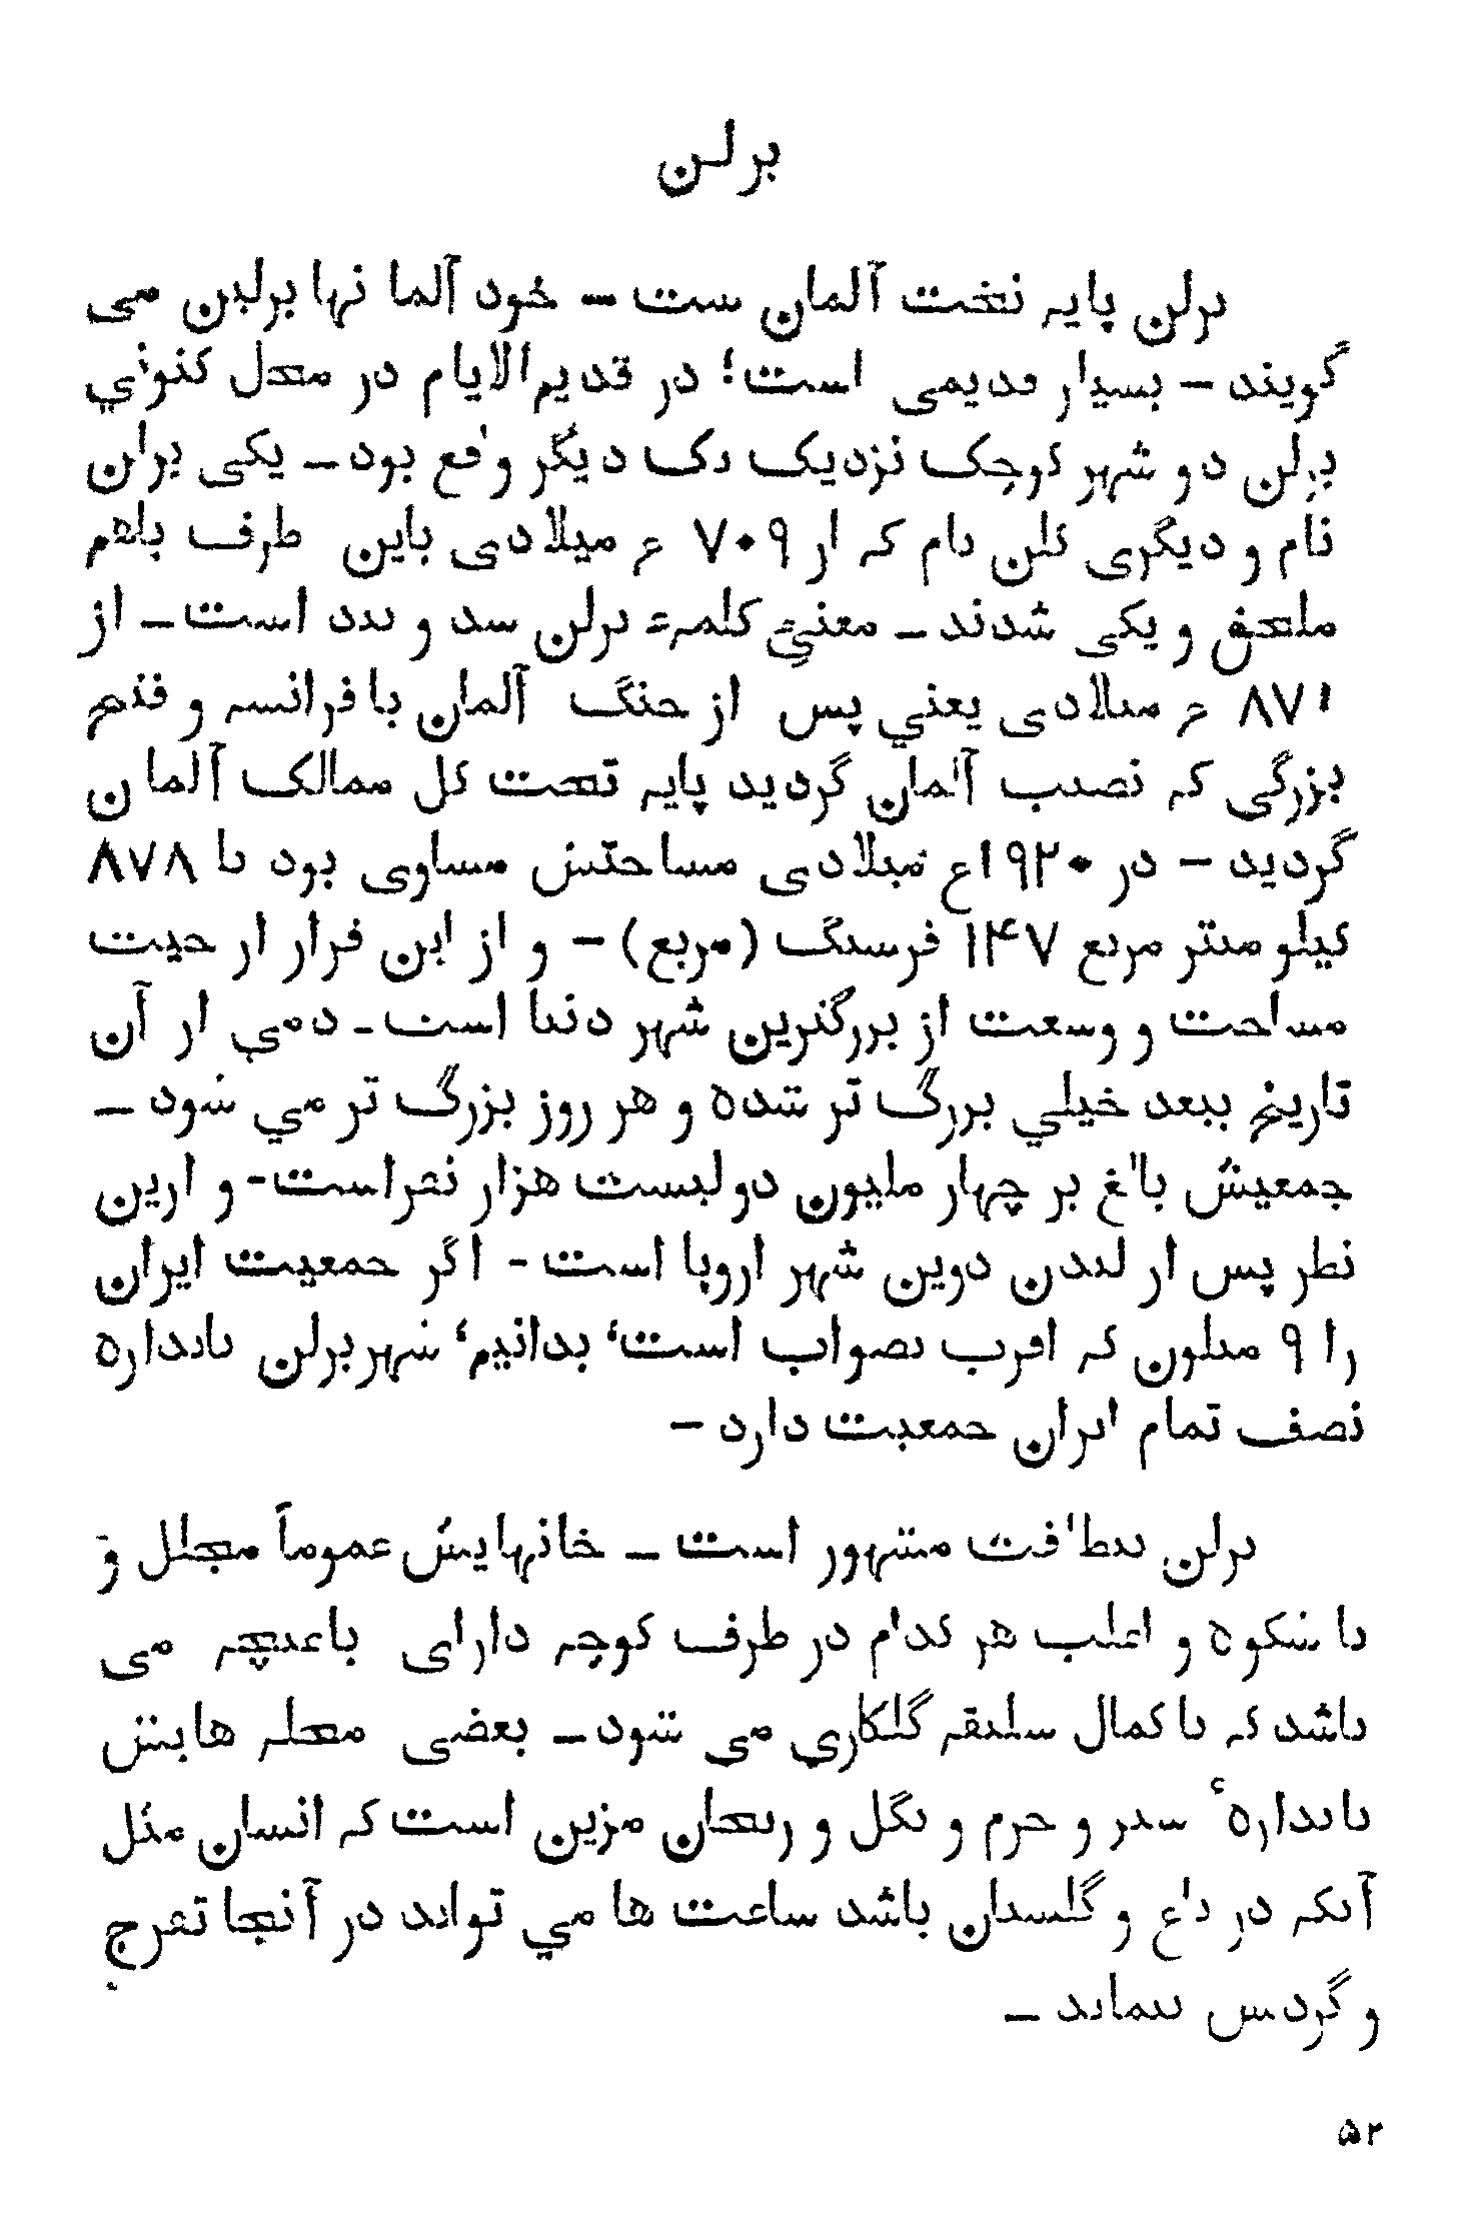 برلن
برلن پایہ تخت آلمان ست – خود آلما نها برلین می
گویند – بسیار قدیمی است؛ در قدیم‌الایام در محل کنوني
برلن دو شهر کوچک نزدیک یک دیگر واقع بود – یکی برلن
نام و دیگری کلن نام کہ از ۷۰۹ ء میلادی باین طرف باهم
ملحق و یکی شدند – معنیِ کلمہء برلن سد و بند است – از
۸۷۱ ء میلادی یعني پس از جنگ آلمان با فرانسہ و فتح
بزرگی کہ نصیب آلمان گردید پایہ تخت کل ممالک آلمان
گردید – در ۱۹۲۰ع میلادی مساحتش مساوی بود با ۸۷۸
کیلو متر مربع ۱۴۷ فرسنگ (مربع) – و از این قرار از حیث
مساحت و وسعت از بزرگترین شهر دنیا است – دمي از آن
تاریخ ببعد خیلي بزرگ تر شده و هر روز بزرگ تر مي شود –
جمعیتش بالغ بر چهار ملیون دولیست هزار نفراست- و ازین
نظر پس از لندن دوین شهر اروپا است - اگر جمعیت ایران
را ۹ ملیون کہ اقرب بصواب است، بدانیم، شهربرلن باندازه
نصف تمام ایران جمعیت دارد –
برلن بنظافت مشهور است – خانهایش عموماً مجلل و
با شکوه و اغلب هر کدام در طرف کوچہ دارای باغیچہ می
باشد کہ با کمال سلیقہ گلکاري می شود – بعضی محلہ هایش
باندازهٔ سبز و خرم و بگل و ریحان مزین است کہ انسان مثل
آنکہ در باغ و گلستان باشد ساعت ها مي تواند در آنجا تفرج
و گردش بنماید –
۵۲